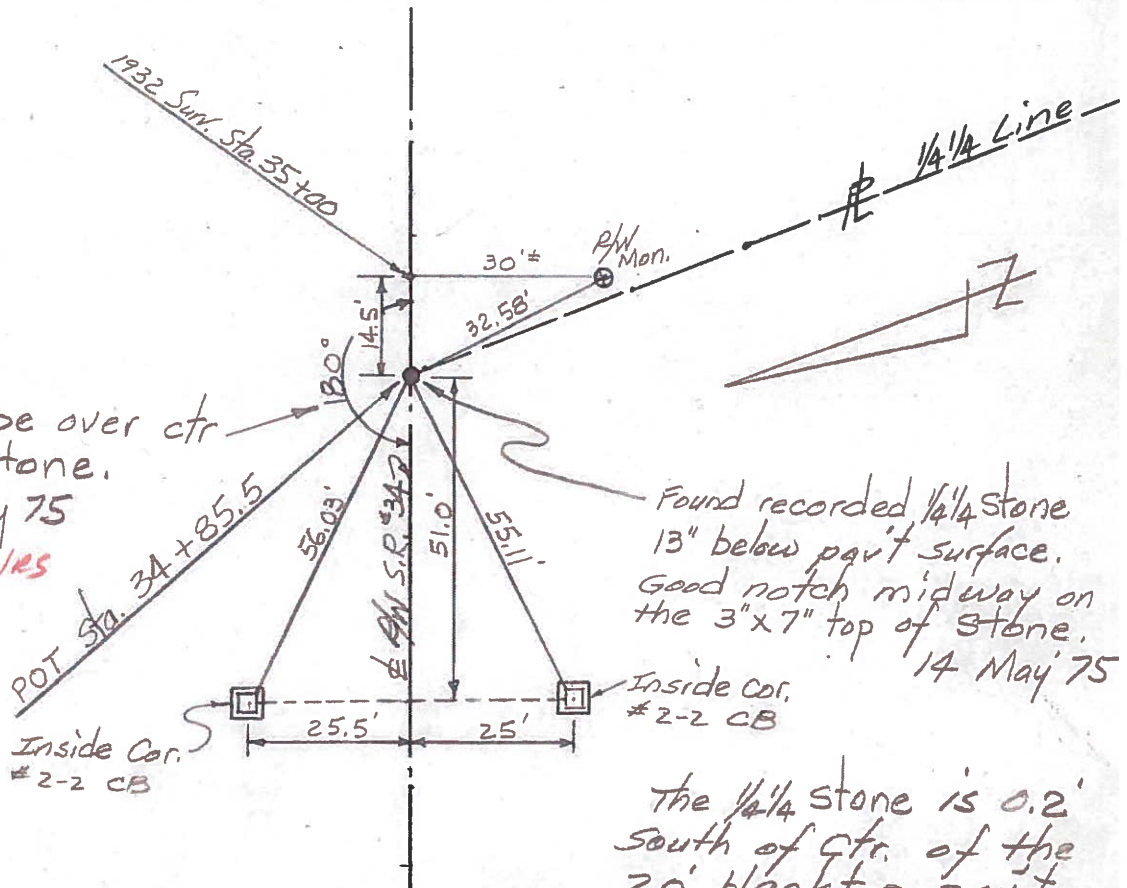 1932 Surv. Sta. 35+00
1/4 1/4 Line
R/W
Mon.
30'±
32.58'
14.5'
180°
pe over ctr
tone.
75
POT Sta. 34+85.5
56.03'
51.0'
55.11'
Found recorded 1/4 1/4 Stone
13" below pav't surface.
Good notch midway on
the 3"x7" top of Stone.
14 May '75
Inside Cor.
#2-2 CB
Inside Cor.
#2-2 CB
25.5'
25'
The 1/4 1/4 stone is 0.2'
South of Ctr. of the